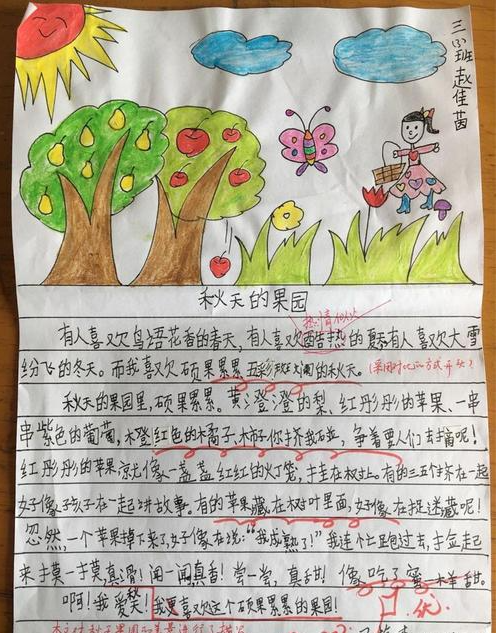 三(3)班 赵佳茵
秋天的果园
热情似火
有人喜欢鸟语花香的春天,有人喜欢酷热的夏天有人喜欢大雪
纷飞的冬天。而我喜欢硕果累累、五彩斑斓的秋天。
(采用对比的方式开头)
秋天的果园里,硕果累累。黄澄澄的梨、红彤彤的苹果、一串
串紫色的葡萄,橙红色的橘子、柿子你挤我碰,争着要人们去摘呢!
红彤彤的苹果就像一盏盏红红的灯笼,挂在树上。有的三五个挤在一起
好像孩子在一起讲故事。有的苹果藏在树叶里面,好像在捉迷藏呢!
忽然,一个苹果掉下来了,好像在说:“我成熟了!”我连忙跑过去,捡起
来摸一摸真滑!闻一闻真香!尝一尝,真甜!像吃了蜜一样甜。
啊!我爱秋!我更喜欢这个硕果累累的果园!
优